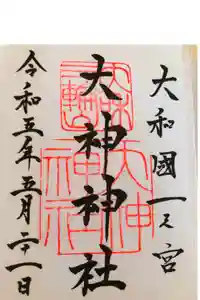 大和國一之宮
大神神社
令和五年五月二十一日
大神神社